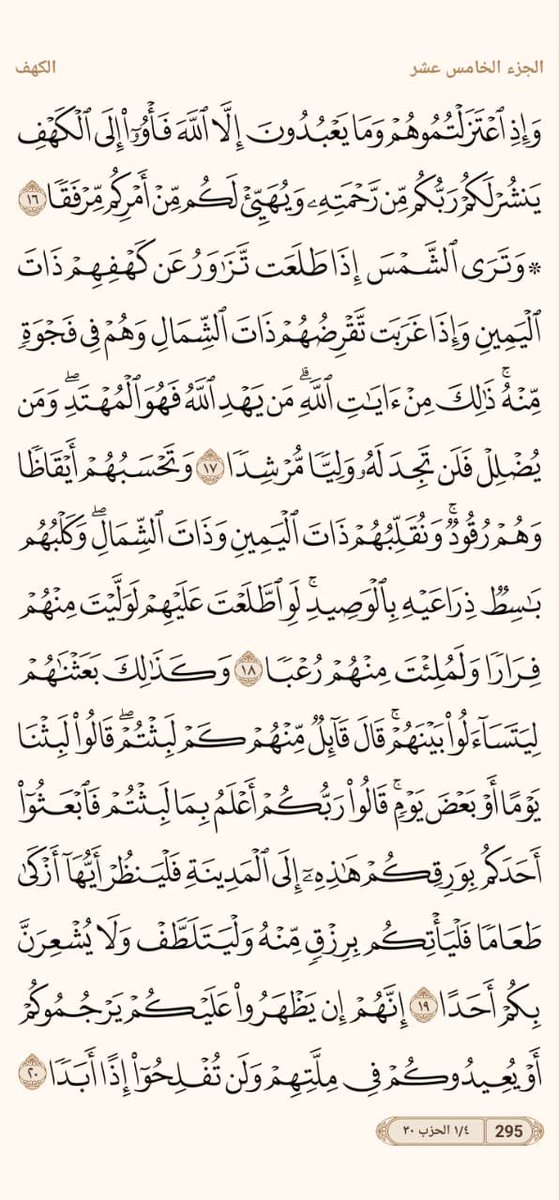 الجزء الخامس عشر
الكهف
وَإِذِ ٱعۡتَزَلۡتُمُوهُمۡ وَمَا يَعۡبُدُونَ إِلَّا ٱللَّهَ فَأۡوُۥٓاْ إِلَى ٱلۡكَهۡفِ
يَنشُرۡ لَكُمۡ رَبُّكُم مِّن رَّحۡمَتِهِۦ وَيُهَيِّئۡ لَكُم مِّنۡ أَمۡرِكُم مِّرۡفَقٗا ١٦
۞ وَتَرَى ٱلشَّمۡسَ إِذَا طَلَعَت تَّزَٰوَرُ عَن كَهۡفِهِمۡ ذَاتَ
ٱلۡيَمِينِ وَإِذَا غَرَبَت تَّقۡرِضُهُمۡ ذَاتَ ٱلشِّمَالِ وَهُمۡ فِي فَجۡوَةٖ
مِّنۡهُۚ ذَٰلِكَ مِنۡ ءَايَٰتِ ٱللَّهِۗ مَن يَهۡدِ ٱللَّهُ فَهُوَ ٱلۡمُهۡتَدِۖ وَمَن
يُضۡلِلۡ فَلَن تَجِدَ لَهُۥ وَلِيّٗا مُّرۡشِدٗا ١٧ وَتَحۡسَبُهُمۡ أَيۡقَاظٗا
وَهُمۡ رُقُودٞۚ وَنُقَلِّبُهُمۡ ذَاتَ ٱلۡيَمِينِ وَذَاتَ ٱلشِّمَالِۖ وَكَلۡبُهُم
بَٰسِطٞ ذِرَاعَيۡهِ بِٱلۡوَصِيدِۚ لَوِ ٱطَّلَعۡتَ عَلَيۡهِمۡ لَوَلَّيۡتَ مِنۡهُمۡ
فِرَارٗا وَلَمُلِئۡتَ مِنۡهُمۡ رُعۡبٗا ١٨ وَكَذَٰلِكَ بَعَثۡنَٰهُمۡ
لِيَتَسَآءَلُواْ بَيۡنَهُمۡۚ قَالَ قَآئِلٞ مِّنۡهُمۡ كَمۡ لَبِثۡتُمۡۖ قَالُواْ لَبِثۡنَا
يَوۡمًا أَوۡ بَعۡضَ يَوۡمٖۚ قَالُواْ رَبُّكُمۡ أَعۡلَمُ بِمَا لَبِثۡتُمۡ فَٱبۡعَثُوٓاْ
أَحَدَكُم بِوَرِقِكُمۡ هَٰذِهِۦٓ إِلَى ٱلۡمَدِينَةِ فَلۡيَنظُرۡ أَيُّهَآ أَزۡكَىٰ
طَعَامٗا فَلۡيَأۡتِكُم بِرِزۡقٖ مِّنۡهُ وَلۡيَتَلَطَّفۡ وَلَا يُشۡعِرَنَّ
بِكُمۡ أَحَدًا ١٩ إِنَّهُمۡ إِن يَظۡهَرُواْ عَلَيۡكُمۡ يَرۡجُمُوكُمۡ
أَوۡ يُعِيدُوكُمۡ فِي مِلَّتِهِمۡ وَلَن تُفۡلِحُوٓاْ إِذًا أَبَدٗا ٢٠
295
١/٤ الحزب ٣٠